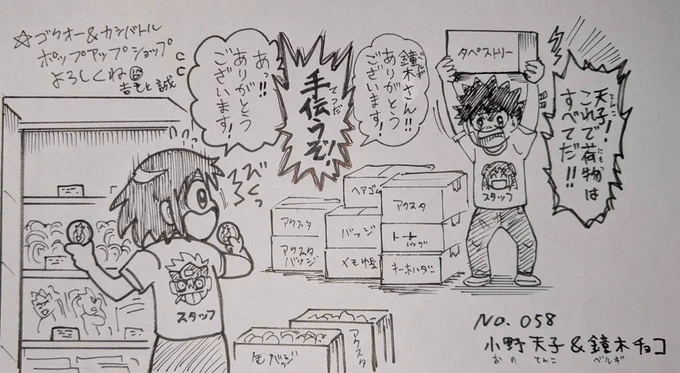 ☆ゴクオー&カンバトル
ポップアップショップ
よろしくね
吉もと 誠
タペストリー
天子!
てんこ
これで荷物は
にもつ
すべてだ!!
鐘木さん!!
ベルギ
ありがとう
ございます!
手伝うぞ!
てつだ
あっ!!
ありがとう
ございます!
びくっ
スタッフ
スタッフ
ヘアゴム
アクスタ
アクスタ
バッジ
アクスタ
バッジ
メモ帳
缶バッジ
アクスタ
No. 058
小野 天子&鐘木チョコ
おの てんこ ベルギ